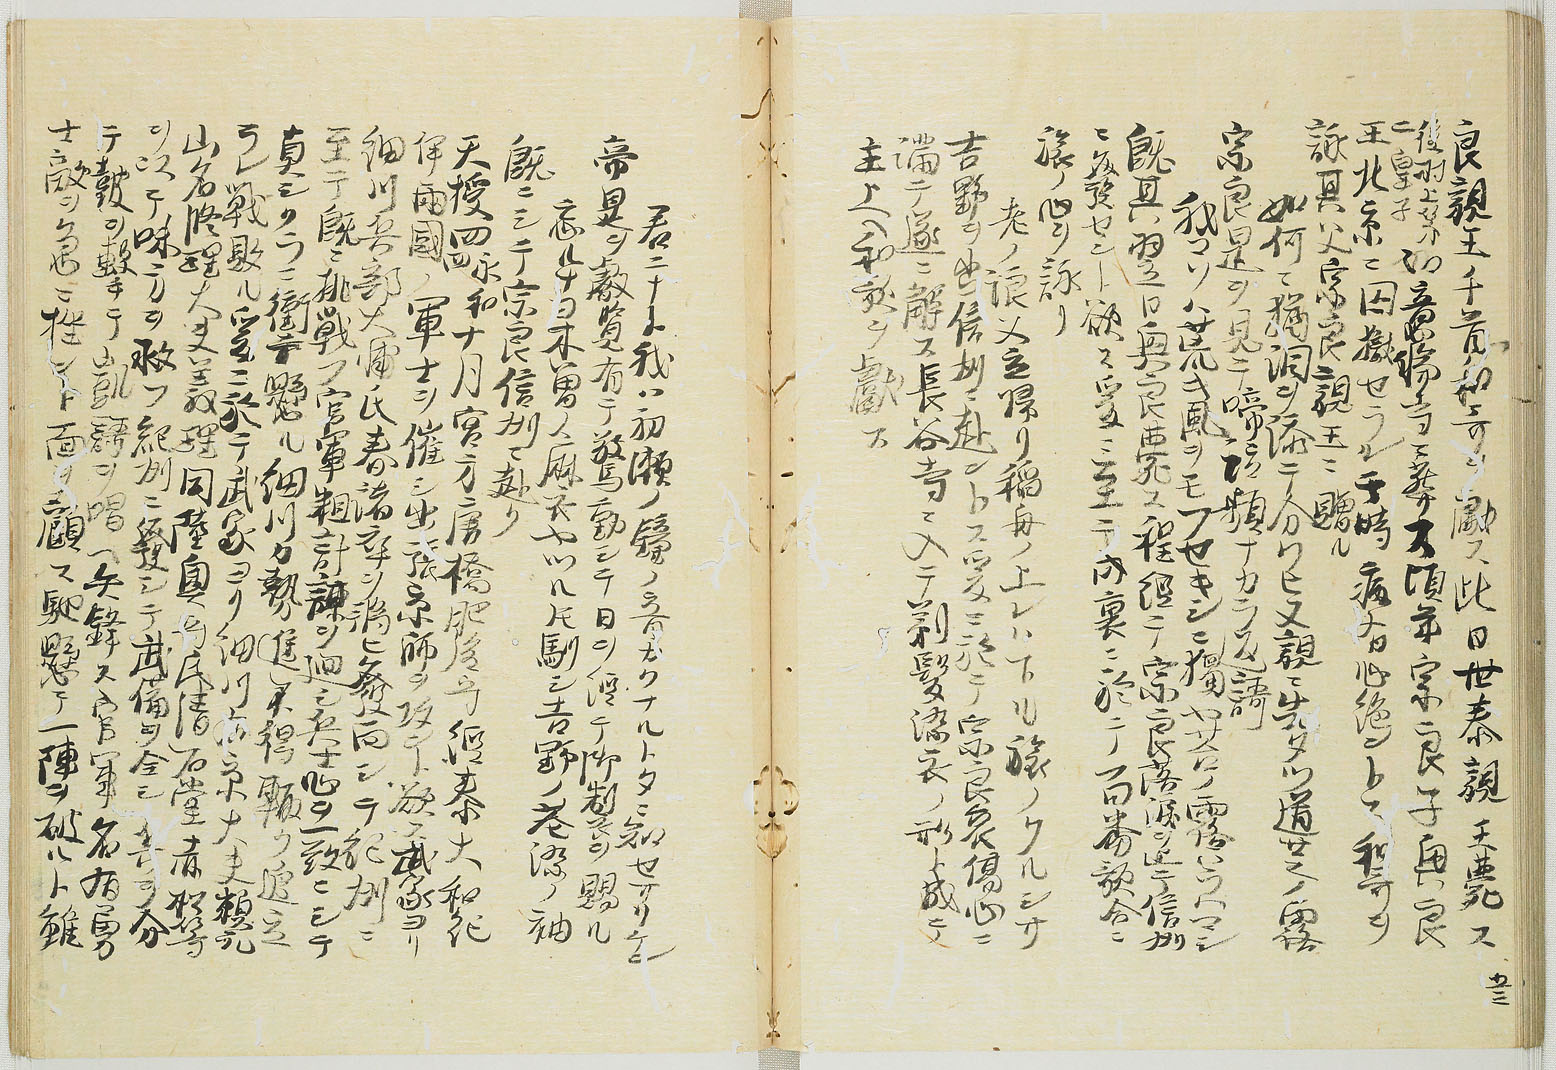 良親王千首ノ和哥ヲ獻ス此日世泰親王薨ス
後村上第
二皇子
如意輪寺ニ葬ス頃年宗良子興良
王北京ニ囚獄セラル于時病ヲ心絶ントス和哥ヲ
詠其父宗良親王ニ贈ル
如何ニ猶涙ヲ添テ分ワヒヌ親ニ先タツ道芝ノ露
宗良是ヲ見テ啼泣頻ナカラ返謌
我コソハ荒キ風ヲモフセキシニ獨ヤ苔ノ露ハラハマシ
既其翌日興良薨ス程經テ宗良落涙ヲ止テ信州
ニ発セント欲ス爰ニ至テ内裏ニ於テ百番歌合ニ
旅ノ心ヲ詠リ
老ノ浪又立帰リ稲舟ノ上レハ下ル旅ノクルシサ
吉野ヲ出信州ニ赴ントス爰ニ於テ宗良哀傷心ニ
満テ遂ニ辭ス長谷寺ニ入テ剃髮染衣ノ形ト成テ
主上ヘ和歌ヲ獻ス
君ニ子我ハ初瀬ノ鐘ノ音カクナルトタニ知セサリケル
帝是ヲ叡覧有テ驚動シテ日ヲ經テ御製ヲ賜ル
忘ルナヨ木曽ノ麻衣ヤツルトモ馴シ吉野ノ花染ノ袖
既ニシテ宗良信州ニ赴リ
天授四永和四十月宮方ニ属橋肥後守經泰大和紀
伊兩國ノ軍士ヲ催シ出張京師ヲ攻ント欲ス武家ヨリ
細川兵部大輔氏春諸卒ヲ添ヒ発向シテ紀州ニ
至テ既ニ挑戦フ官軍粗計謀ヲ廻シ兵士心ヲ一致ニシテ
真シクラニ衝テ懸ル細川カ勢進不得輙ク追立
ラレ戦敗ル爰ニ於テ武家ヨリ細川右京大夫頼元
山名修理大夫義理同陸奥守氏清石堂赤松等
ヲ以テ味方ヲ救フ紀州ニ発シテ武備ヲ全シ兵ヲ分
テ鼓ヲ撃テ凱謌ヲ唱ヘ矢鋒ス官軍名有勇
士敵ヲ竒ニ挫ント面ヲ顧ス馳懸テ一陣ヲ破ルト雖
五三